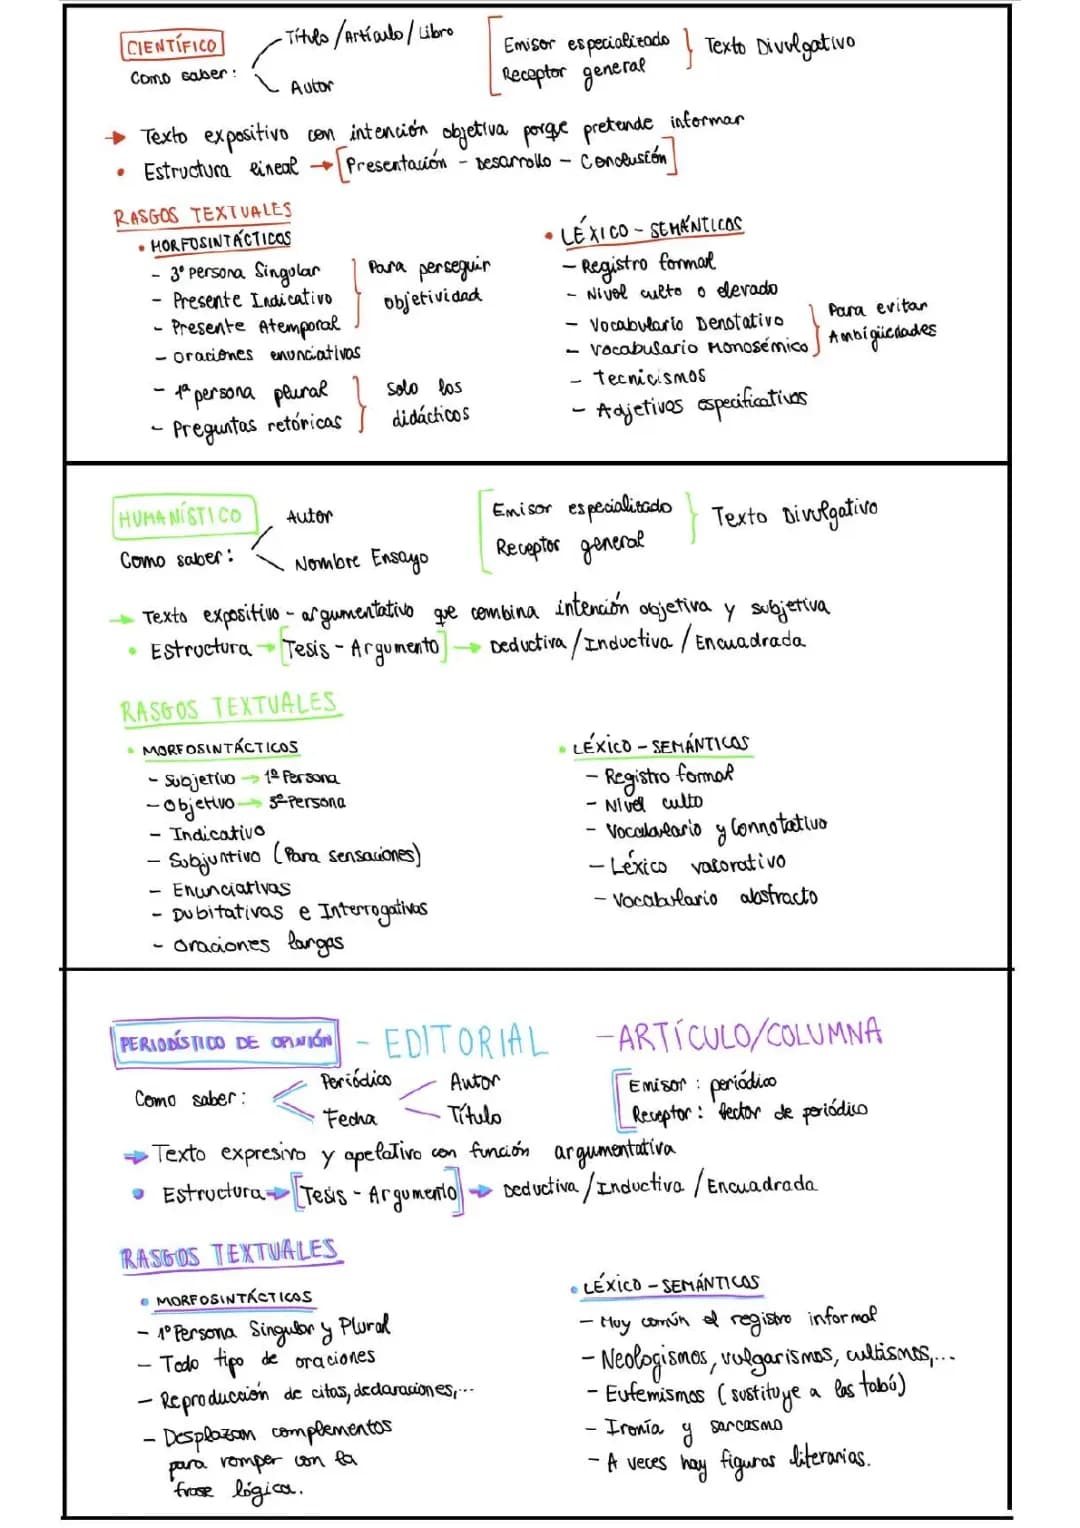 CIENTÍFICO
Como saber:
Título/Artículo/Libro
Autor
Emisor especializado
Receptor general
Texto Divulgativo
→ Texto expositivo con intención objetiva porque pretende informar
• Estructura lineal → [Presentación - Desarrollo - Conclusión]
RASGOS TEXTUALES
• MORFOSINTÁCTICOS
- 3ª Persona Singular
- Presente Indicativo
- Presente Atemporal
Para perseguir
objetividad
- Oraciones enunciativas
- 1ª persona plural
- Preguntas retóricas
Solo los
didácticos
• LÉXICO - SEMÁNTICOS
- Registro formal
- Nivel culto o elevado
- Vocabulario Denotativo
- Vocabulario Monosémico
Para evitar
Ambigüedades
- Tecnicismos
- Adjetivos especificativos
HUMANÍSTICO
Como saber:
Autor
Nombre Ensayo
Emisor especializado
Receptor general
Texto Divulgativo
→ Texto expositivo - argumentativo que combina intención objetiva y subjetiva
• Estructura → [Tesis - Argumento] → Deductiva/Inductiva/Encuadrada
RASGOS TEXTUALES
• MORFOSINTÁCTICOS
- Subjetivo → 1ª Persona
- Objetivo → 3ª Persona
- Indicativo
- Subjuntivo (Para sensaciones)
- Enunciativas
- Dubitativas e Interrogativas
- Oraciones largas
• LÉXICO - SEMÁNTICOS
- Registro formal
- Nivel culto
- Vocabulario y Connotativo
- Léxico valorativo
- Vocabulario abstracto
PERIODÍSTICO DE OPINIÓN - EDITORIAL - ARTÍCULO/COLUMNA
Como saber:
Periódico
Fecha
Autor
Título
Emisor: periódico
Receptor: lector de periódico
→ Texto expresivo y apelativo con función argumentativa
• Estructura → [Tesis - Argumento] → Deductiva/Inductiva/Encuadrada
RASGOS TEXTUALES
• MORFOSINTÁCTICOS
- 1ª Persona Singular y Plural
- Todo tipo de oraciones
- Reproducción de citas, declaraciones,...
- Desplazan complementos
para romper con la
frase lógica.
• LÉXICO - SEMÁNTICOS
- Muy común el registro informal
- Neologismos, vulgarismos, cultismos,...
- Eufemismos (sustituye a las tabú)
- Ironía y sarcasmo
- A veces hay figuras literarias.